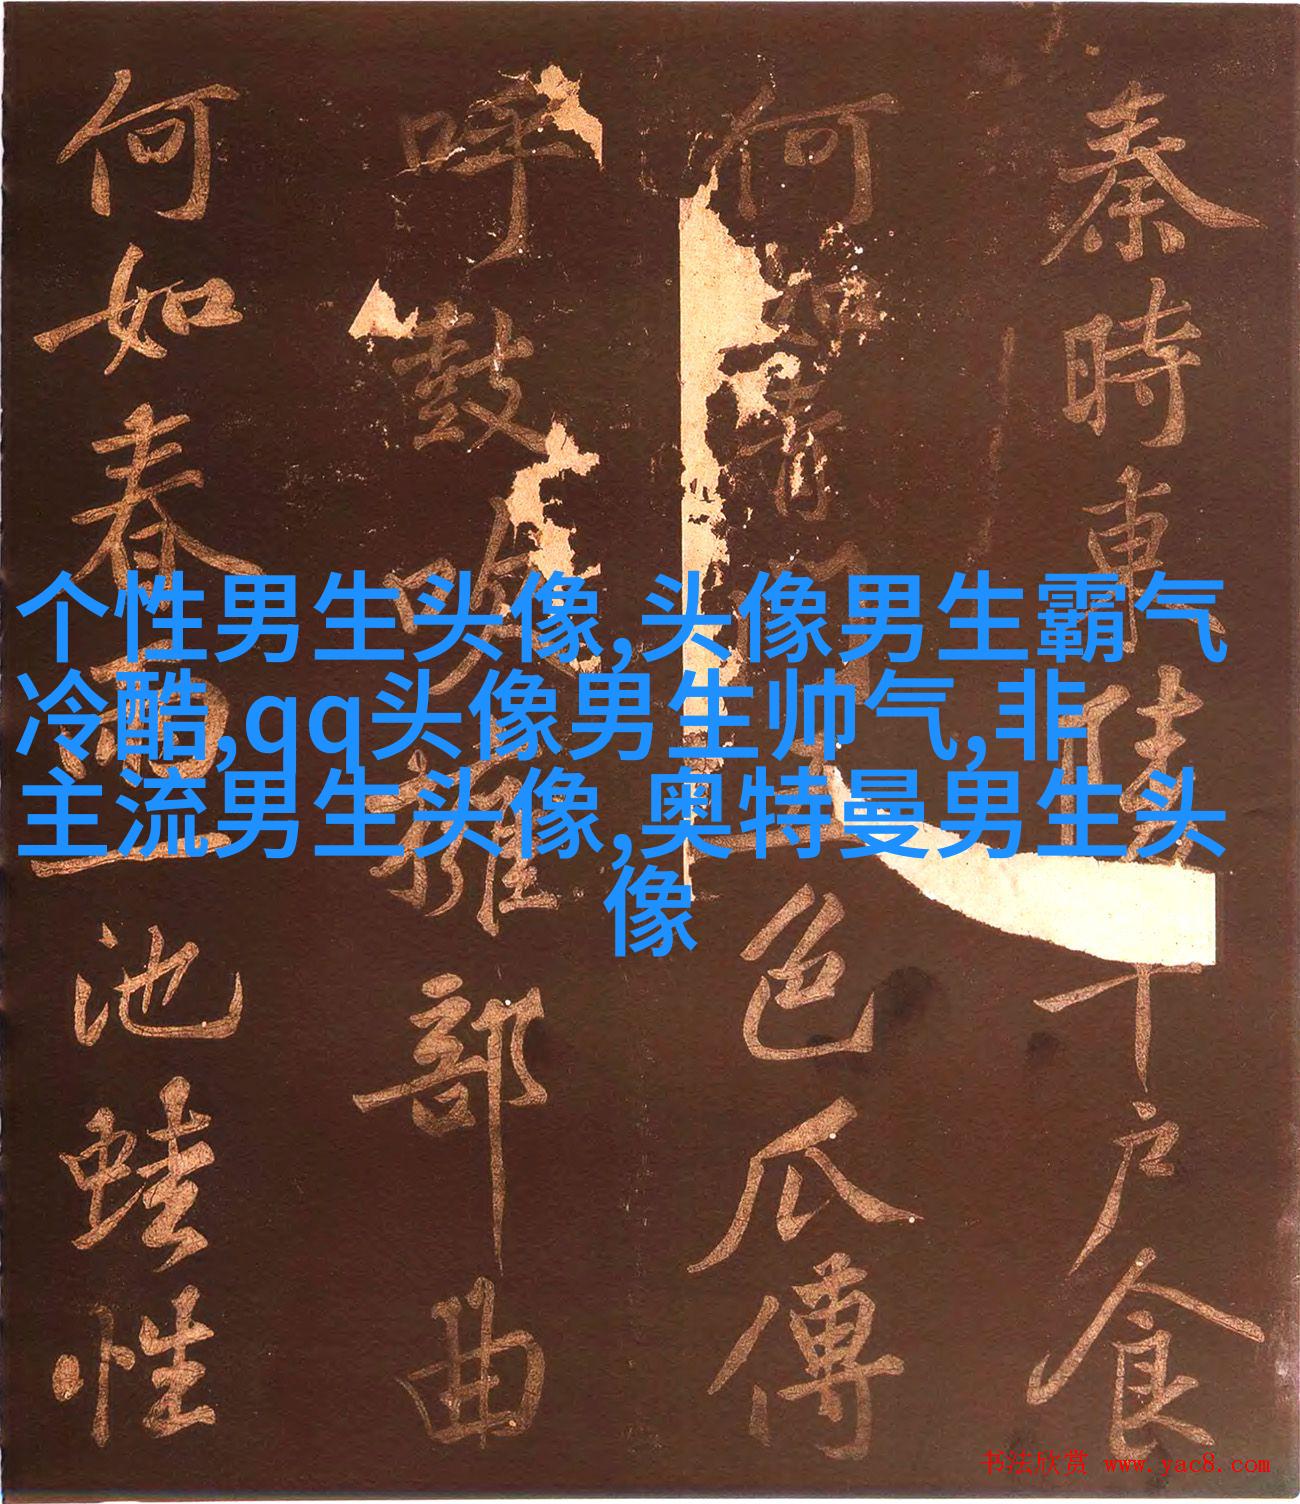 秦時東陵千戶食
何如青門五色瓜傳
呼鼓吹擁部曲
何如春雨一池蛙性
个性男生头像,头像男生霸气
冷酷,qq头像男生帅气,非
主流男生头像,奥特曼男生头
像
书法欣赏 www.yac8.com